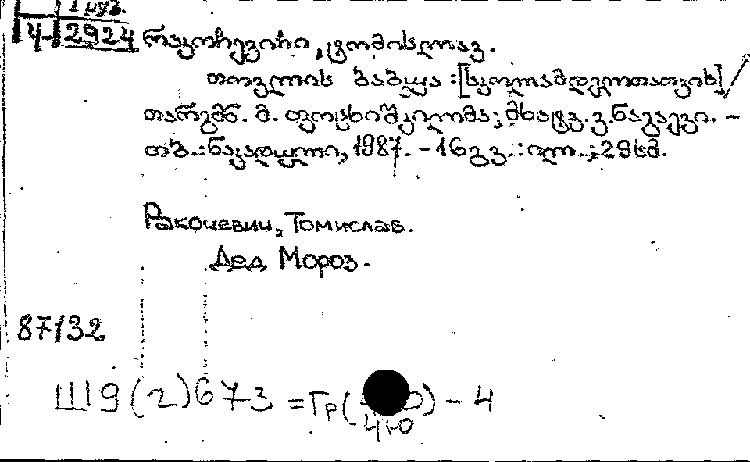 1 მუზ.
4 2924
რაკოჩევიჩი, ტომისლავ.
თოვლის ბაბუა : [სკოლამდელთათვის] /
თარგმნ. მ. ფოცხიშვილმა; მხატვ. ვ. ნაკაევი. –
თბ. : ნაკადული, 1987. – 16 გვ. : ილ. ; 29 სმ.
Ракочевич, Томислав.
Дед Мороз.
87/32
Ш9(2)673 = Гр( ) – 4
4Ю